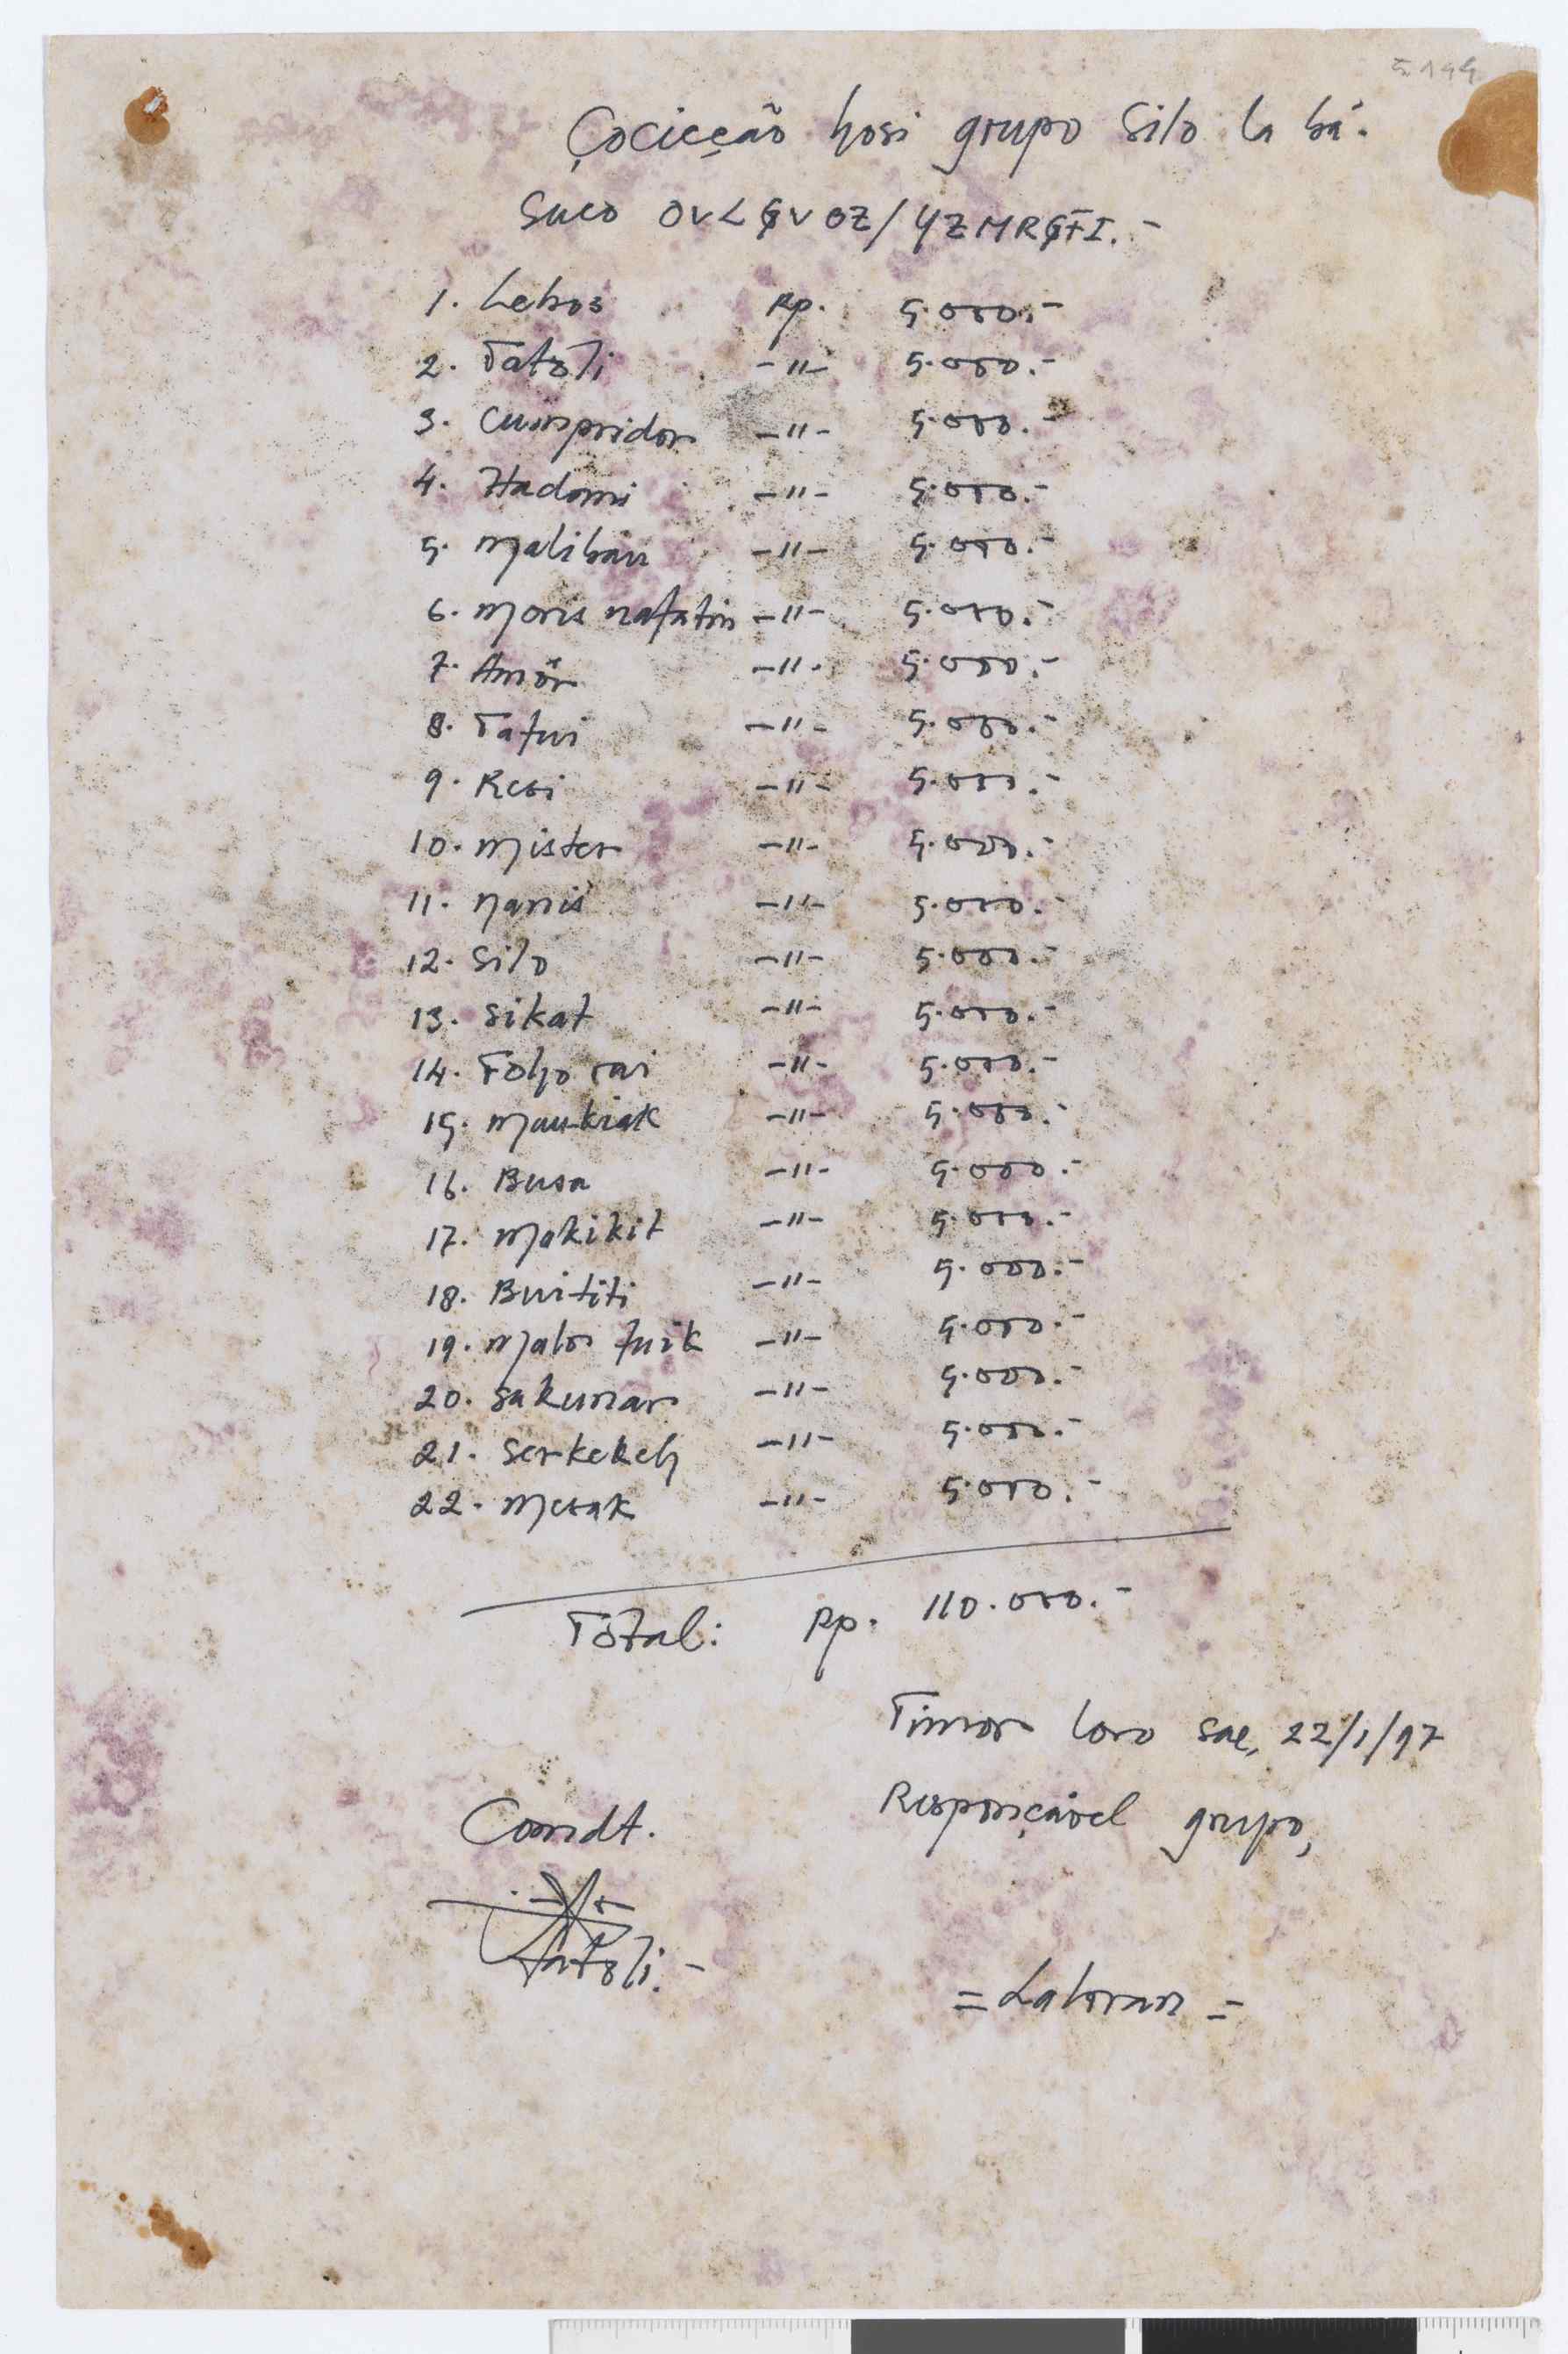 5199
Çocicção hosi grupo Silo la bá.
Suco OVLGVOZ/YZMRGFI.-
1. Lebos Rp. 5.000.-
2. Tatoli -"- 5.000.-
3. Cumpridor -"- 5.000.-
4. Hadomi -"- 5.000.-
5. Malibau -"- 5.000.-
6. Moris nafatin -"- 5.000.-
7. Amór -"- 5.000.-
8. Tafui -"- 5.000.-
9. Resi -"- 5.000.-
10. Mister -"- 5.000.-
11. Nanis -"- 5.000.-
12. Silo -"- 5.000.-
13. Sikat -"- 5.000.-
14. Foho rai -"- 5.000.-
15. Maukiak -"- 5.000.-
16. Busa -"- 5.000.-
17. Makikit -"- 5.000.-
18. Buititi -"- 5.000.-
19. Malor fuik -"- 5.000.-
20. Sakunar -"- 5.000.-
21. Serkekeh -"- 5.000.-
22. Mesak -"- 5.000.-
Total: Rp. 110.000.-
Timor loro sae, 22/1/97
Comdt. Responçável grupo,
Tatoli.-
= Laloran =